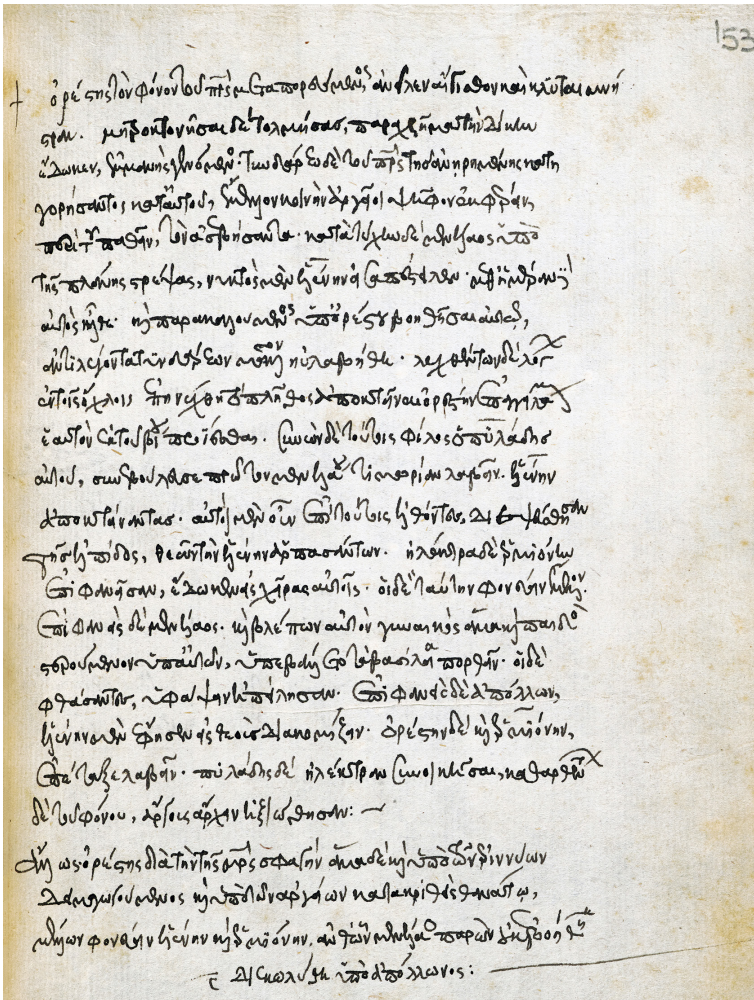 153
ὀρέστης τὸν φόνον τοῦ πατρὸς μεταπορευόμενος ἀνεῖλεν αἴγισθον καὶ κλυταιμνή
στραν. μητροκτονῆσαι δὲ τολμήσας, παραχρῆμα τὴν δίκην
ἔδωκεν, ἐμμανὴς γενόμενος· τυνδάρεω δὲ τοῦ πατρὸς τῆς ἀνηρημένης κατη
γορήσαντος κατ' αὐτοῦ, ἔμελλον κοινὴν ἀργεῖοι ψῆφον ἐκφέρειν,
περὶ τοῦ τί παθεῖν, τὸν ἀσεβήσαντα· κατὰ τύχην δὲ μενέλαος ὑπὸ
τῆς πλάνης στρέψας, νυκτὸς μὲν ἑλένην εἰσαπέστειλεν· μεθ' ἡμέραν δὲ
αὐτὸς ἦλθε· καὶ παρακαλούμενος ὑπ' ὀρέστου βοηθῆσαι αὐτῷ,
ἀντιλέγοντα τυνδάρεων μᾶλλον ηὐλαβήθη· λεχθέντων δὲ λόγων
ἐν τοῖς ὄχλοις ἐπηνέχθη τὸ πλῆθος ἀποκτείνειν ὀρέστην ἐπαγγειλάμενος
ἑαυτὸν ἐκ τοῦ βίου προΐεσθαι. συνὼν δὲ τούτοις φίλος ὁ πυλάδης
αὐτοῦ, συνεβούλευσε πρῶτον μενελάου τιμωρίαν λαβεῖν· ἑλένην
ἀποκτείναντας· αὐτοὶ μὲν οὖν ἐπὶ τούτοις ἐλθόντες, διεψεύσθησαν
τῆς ἐλπίδος, θεῶν τὴν ἑλένην ἁρπασάντων· ἠλέκτρα δὲ ἑρμιόνην
ἐπιφανεῖσαν, ἔδωκεν εἰς χεῖρας αὐτοῖς· οἱ δὲ ταύτην φονεύειν ἔμελλον·
ἐπιφανεὶς δὲ μενέλαος· καὶ βλέπων αὐτὸν γυναικὸς ἅμα καὶ παιδὸς
στερούμενον ὑπ' αὐτῶν, ὑπεβάλετο τὰ βασίλεια πορθεῖν· οἱ δὲ
φθάσαντες, ὑφάψειν ἠπείλησαν· ἐπιφανεὶς δὲ ἀπόλλων,
ἑλένην μὲν ἔφησεν εἰς θεοὺς διακομίζειν· ὀρέστην δὲ καὶ ἑρμιόνην,
ἐπέταξε λαβεῖν· πυλάδης δὲ ἠλέκτραν συνοικῆσαι, καθαρθέντων
δὲ τοῦ φόνου, ἄργους ἄρχειν ἠξιώθησαν:
ἄλλως· ὀρέστης διὰ τὴν τῆς μητρὸς σφαγὴν ἅμα δὲ καὶ ὑπὸ τῶν ἐριννύων
δειματούμενος καὶ ὑπὸ τῶν ἀργείων κατακριθεὶς θανάτῳ,
μέλλων φονεύειν ἑλένην καὶ ἑρμιόνην, ἀνθ' ὧν μενέλαος παρὼν οὐκ ἐβοήθησε
διεκωλύθη ὑπὸ ἀπόλλωνος: